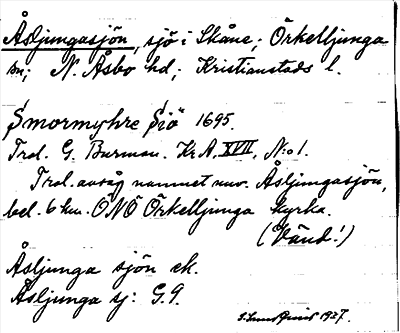 Åsljungasjön, sjö i Skåne; Örkelljunga
sn; N. Åsbo hd; Kristianstads l.
Smormyhre Siö 1695.
Trol. G. Burman. Kr.A. XVII, N:o 1.
Trol. avsåg namnet nuv. Åsljungasjön,
bel. 6 km. ÖNÖ Örkelljunga kyrka.
(Vänd!)
Åsljunga sjön ek.
Åsljunga sj: G.9.
1937.